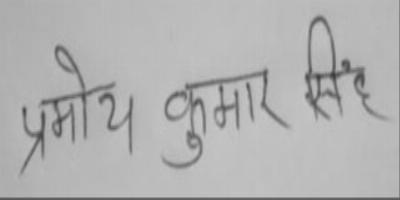 प्रमोय कुमार सिंह